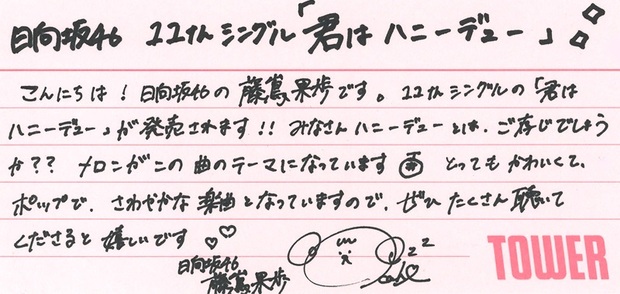 日向坂46 11thシングル「君は ハニーデュー」
こんにちは！日向坂46の 藤嶌果歩です。11thシングルの「君は
ハニーデュー」が発売されます!! みなさん ハニーデューとは、ご存じでしょう
か?? メロンがこの曲のテーマになっています とってもかわいくて、
ポップで、さわやかな楽曲となっていますので、ぜひたくさん聴いて
くださると嬉しいです
日向坂46
藤嶌果歩
TOWER